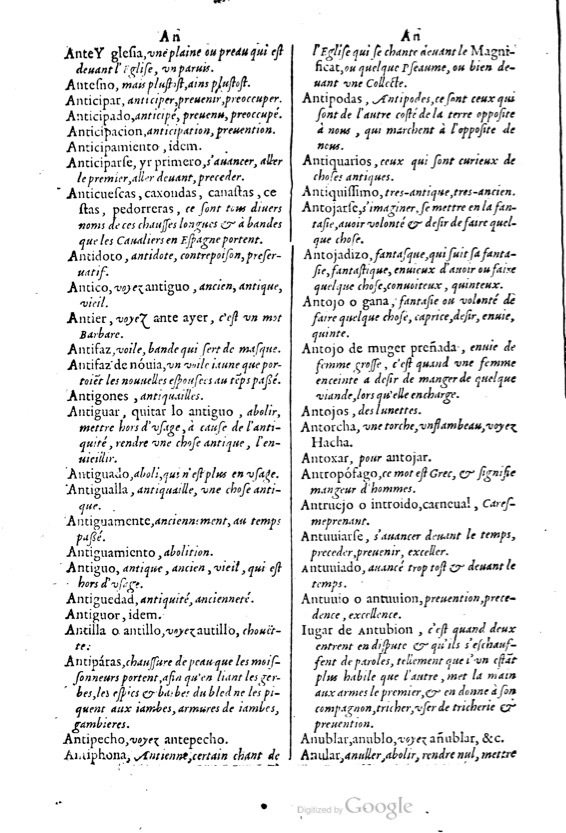 An
AnteY glesia, vne plaine ou preau qui est
deuant l'Eglise, vn paruis.
Antesno, mais plustost, ains plustost.
Anticipar, anticiper, preuenir, preoccuper.
Anticipado, anticipé, preuenu, preoccupé.
Anticipacion, anticipation, preuention.
Anticipamiento, idem.
Anticiparse, yr primero, s'auancer, aller
le premier, aller deuant, preceder.
Anticuescas, caxondas, canastas, ce
stas, pedorreras, ce sont tous diuers
noms de ces chausses longues & à bandes
que les Caualiers en Espagne portent.
Antidoto, antidote, contrepoison, preser-
uatif.
Antico, voyez antiguo, ancien, antique,
vieil.
Antier, voyez ante ayer, c'est vn mot
Barbare.
Antifaz, voile, bande qui sert de masque.
Antifaz de nouia, vn voile iaune que por-
toiẽt les nouuelles espousees au tẽps passé.
Antigones, antiquailles.
Antiguar, quitar lo antiguo, abolir,
mettre hors d'vsage, à cause de l'anti-
quité, rendre vne chose antique, l'en-
uieillir.
Antiguado, aboli, qui n'est plus en vsage.
Antigualla, antiquaille, vne chose anti-
que.
Antiguamente, anciennement, au temps
passé.
Antiguamiento, abolition.
Antiguo, antique, ancien, vieil, qui est
hors d'vsage.
Antiguedad, antiquité, ancienneté.
Antiguor, idem.
Antilla o antillo, voyez autillo, chouët-
te.
Antipáras, chaussure de peau que les mois-
sonneurs portent, afin qu'en liant les ger-
bes, les espics & barbes du bled ne les pi-
quent aux iambes, armures de iambes,
gambieres.
Antipecho, voyez antepecho.
Antiphona, Antienne, certain chant de
An
l'Eglise qui se chante deuant le Magni-
ficat, ou quelque Pseaume, ou bien de-
uant vne Collecte.
Antipodas, Antipodes, ce sont ceux qui
sont de l'autre costé de la terre opposite
à nous, qui marchent à l'opposite de
nous.
Antiquarios, ceux qui sont curieux de
choses antiques.
Antiquissimo, tres-antique, tres-ancien.
Antojarse, s'imaginer, se mettre en la fan-
tasie, auoir volonté & desir de faire quel-
que chose.
Antojadizo, fantasque, qui suit sa fanta-
sie, fantastique, enuieux d'auoir ou faire
quelque chose, conuoiteux, quinteux.
Antojo o gana, fantasie ou volonté de
faire quelque chose, caprice, desir, enuie,
quinte.
Antojo de muger preñada, enuie de
femme grosse, c'est quand vne femme
enceinte a desir de manger de quelque
viande, lors qu'elle encharge.
Antojos, des lunettes.
Antorcha, vne torche, vn flambeau, voyez
Hacha.
Antoxar, pour antojar.
Antropófago, ce mot est Grec, & signifie
mangeur d'hommes.
Antruejo o introido, carneual, Cares-
meprenant.
Antuuiarse, s'auancer deuant le temps,
preceder, preuenir, exceller.
Antuuiado, auancé trop tost & deuant le
temps.
Antuuio o antuuion, preuention, prece-
dence, excellence.
Iugar de Antubion, c'est quand deux
entrent en dispute & qu'ils s'eschauf-
fent de paroles, tellement que l'vn estãt
plus habile que l'autre, met la main
aux armes le premier, & en donne à son
compagnon, tricher, vser de tricherie &
preuention.
Anublar, anublo, voyez añublar, &c.
Anular, anuller, abolir, rendre nul, mettre
Digitized by Google